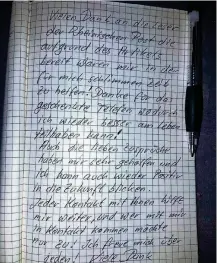 Vielen Dank an die Leser
der Rheinischen Post die
aufgrund des Artikels
bereit waren mir in der
für mich schlimmen Zeit
zu helfen! Danke für das
geschenkte Telefon wodurch
ich wieder besser am Leben
teilhaben kann!
Auch die lieben Gespräche
haben mir sehr geholfen und
ich kann auch wieder Positiv
in die Zukunft blicken.
Jeder Kontakt mit Ihnen
mir weiter, und wer mit mir
in Kontakt kommen möchte
nur zu! Ich freue mich über
jeden! Viele Dank